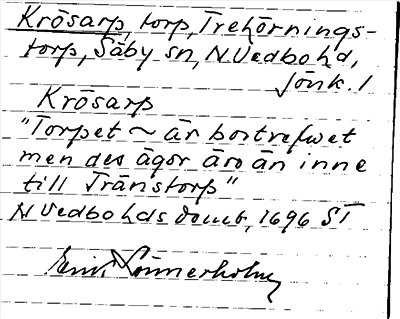 Krösarp, torp, Trehörnings-
torp, Säby sn, N. Vedbo hd,
Jönk. l
Krösarp
"Torpet ~ är bortrefwet
men des ägor äro än inne
till Tränstorp"
N Vedbo hds domb, 1696 ST
Sönnerholm